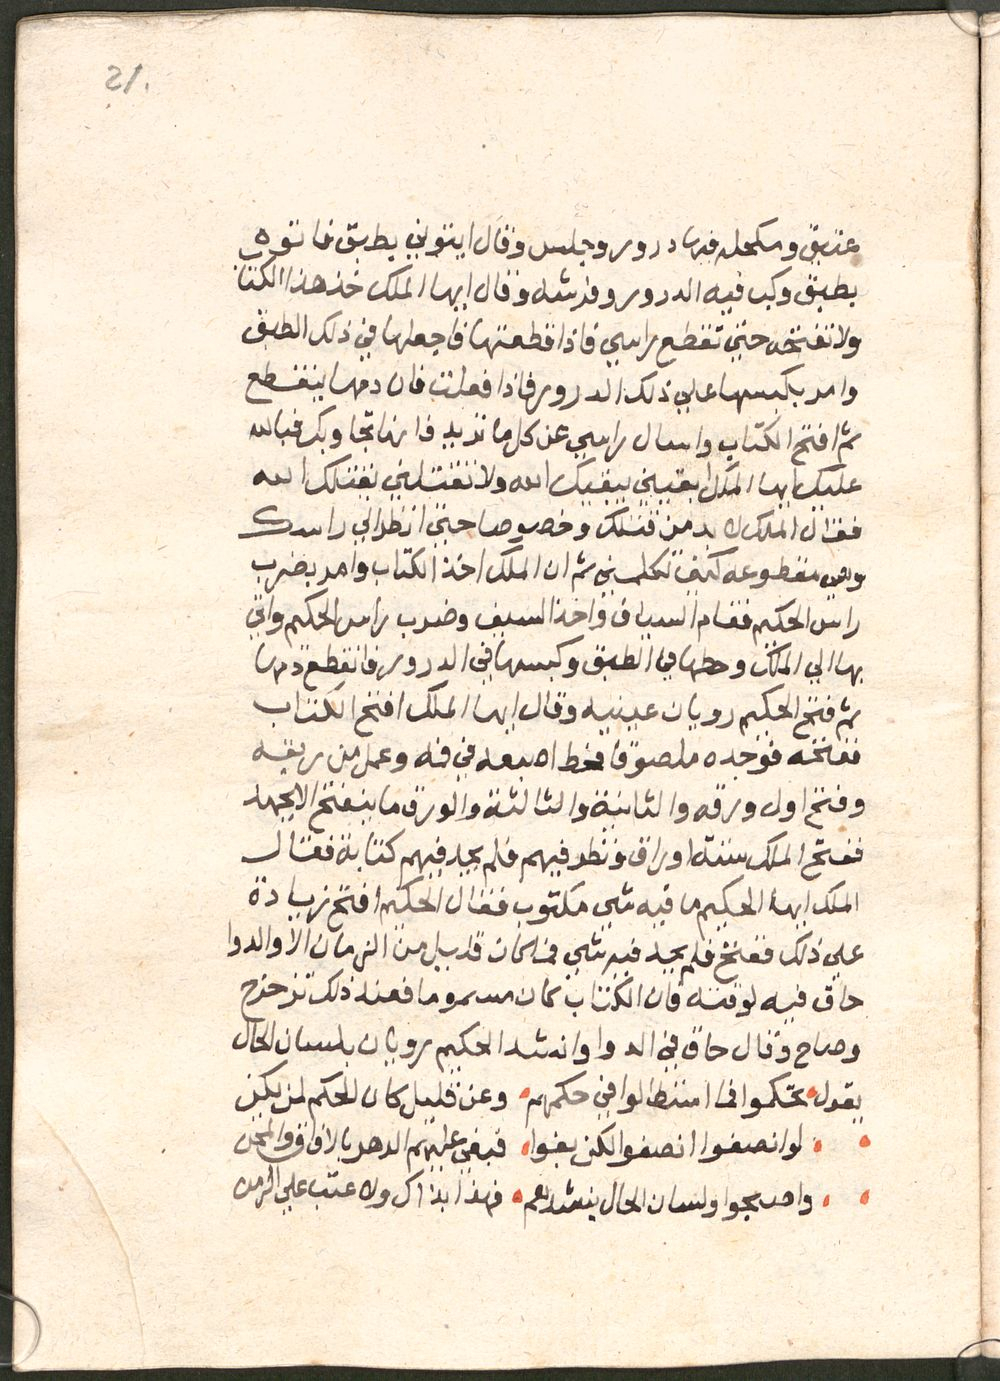 21.
عتيق ومكحله فيها درور وجلس وقال ايتوني بطبق فاتوه
بطبق وكب فيه الدرور وفرشه وقال ايها الملك خذ هذا الكتاب
ولا تفتحه حتي تقطع راسي فاذا قطعتها فاجعلها في ذلك الطبق
وامر بكبسها علي ذلك الدرور فاذا فعلت فان دمها ينقطع
ثم افتح الكتاب واسال راسي عن كل ما تريد فانها تجاوبك فبالله
عليك ايها الملك ابقيني يبقيك الله ولا تقتلني يقتلك الله
فقال الملك لا بد من قتلك وخصوصا حتي انظر الي راسك
وهي مقطوعه كيف تكلمني ثم ان الملك اخذ الكتاب وامر بضرب
راس الحكيم فقام السياف واخذ السيف وضرب راس الحكيم واتي
بها الي الملك وحطها في الطبق وكبسها في الدرور فانقطع دمها
ثم فتح الحكيم رويان عينيه وقال ايها الملك افتح الكتاب
ففتحه فوجده ملصوقا فحط اصبعه في فمه وعمل من ريقه
وفتح اول ورقه والثانية والثالثة والورق ما ينفتح الا بجهد
ففتح الملك ستة اوراق ونظر فيهم فلم يجد فيهم كتابة فقال
الملك ايها الحكيم ما فيه شي مكتوب فقال الحكيم افتح زيادة
علي ذلك ففتح فلم يجد فيه شي فما كان قليل من الزمان الا والدوا
حاق فيه لوقته فان الكتاب كان مسموما فعند ذلك تزحزح
وصاح وقال حاق في الدوا وانشد الحكيم رويان بلسان الحال
يقول تحكموا فاستطالوا في حكمهم وعن قليل كان الحكم لم يكن
لو انصفوا انصفوا لكن بغوا فبغي عليهم الدهر بالافات والمحن
واصبحوا ولسان الحال ينشدهم هذا بذاك ولا عتب علي الزمن